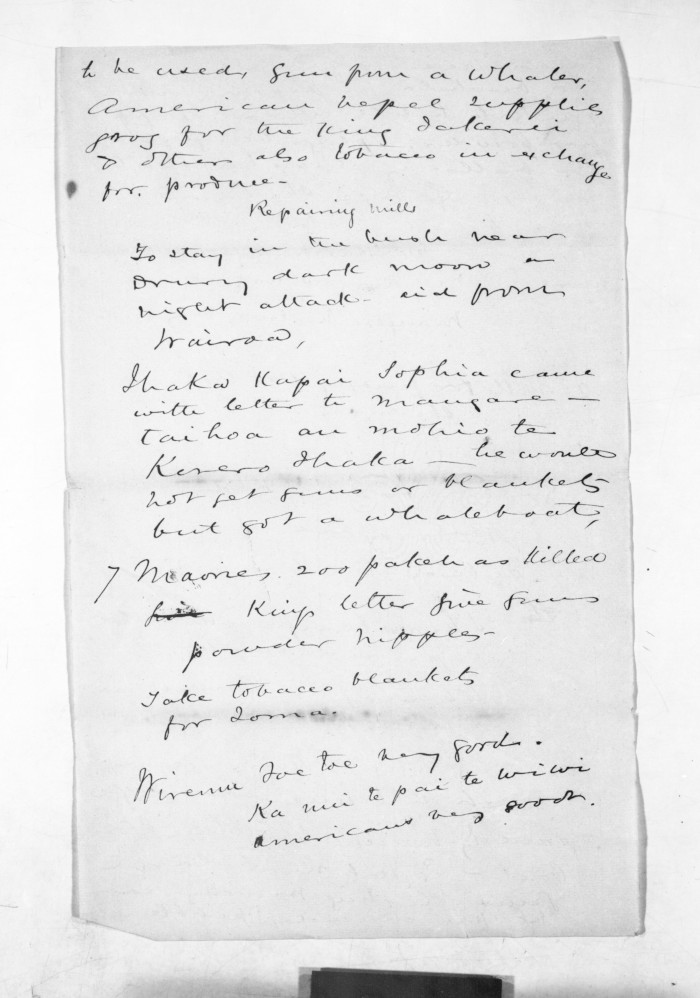 to be used, gun from a whaler,
American vessel supplies
grog for the King Takerei
& others also tobacco in exchange
for produce -
Repairing mills
To stay in the bush near
Drury dark moon a
night attack - aid from
Wairoa,
Ihaka Kapai Sophia came
with letter to Mangare -
taihoa au mohio te
Korero Ihaka - he would
not get guns or blankets
but got a whaleboat,
7 Maories 200 pakehas killed
Kings letter give guns
powder nipples -
Take tobacco blankets
for
Wiremu Toe toe very good.
Ka nui te pai te wiwi
Americans very good.